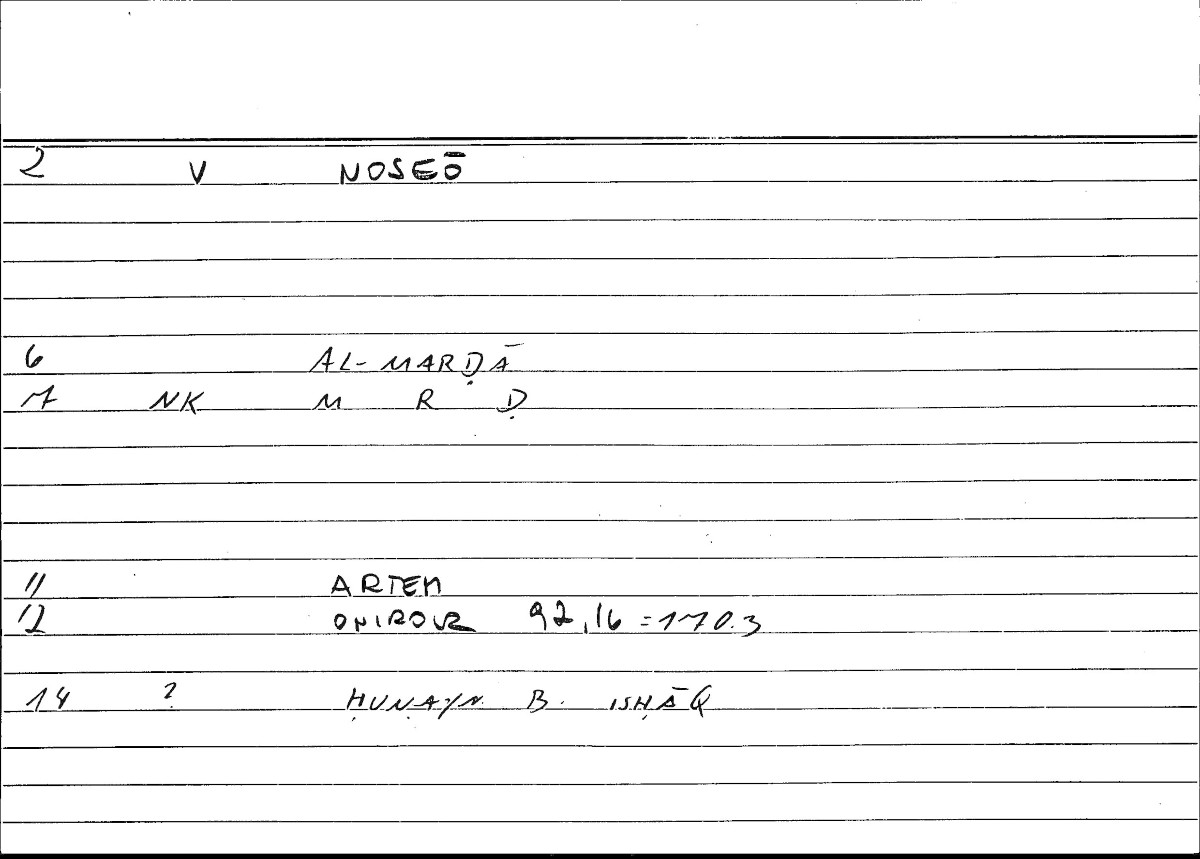 2 V NOSEŌ
6 AL-MARḌĀ
7 NK M R Ḍ
11 ARTEM
12 ONIROCR 92,16 =170.3
14 ? ḤUNAYN B. ISḤĀQ